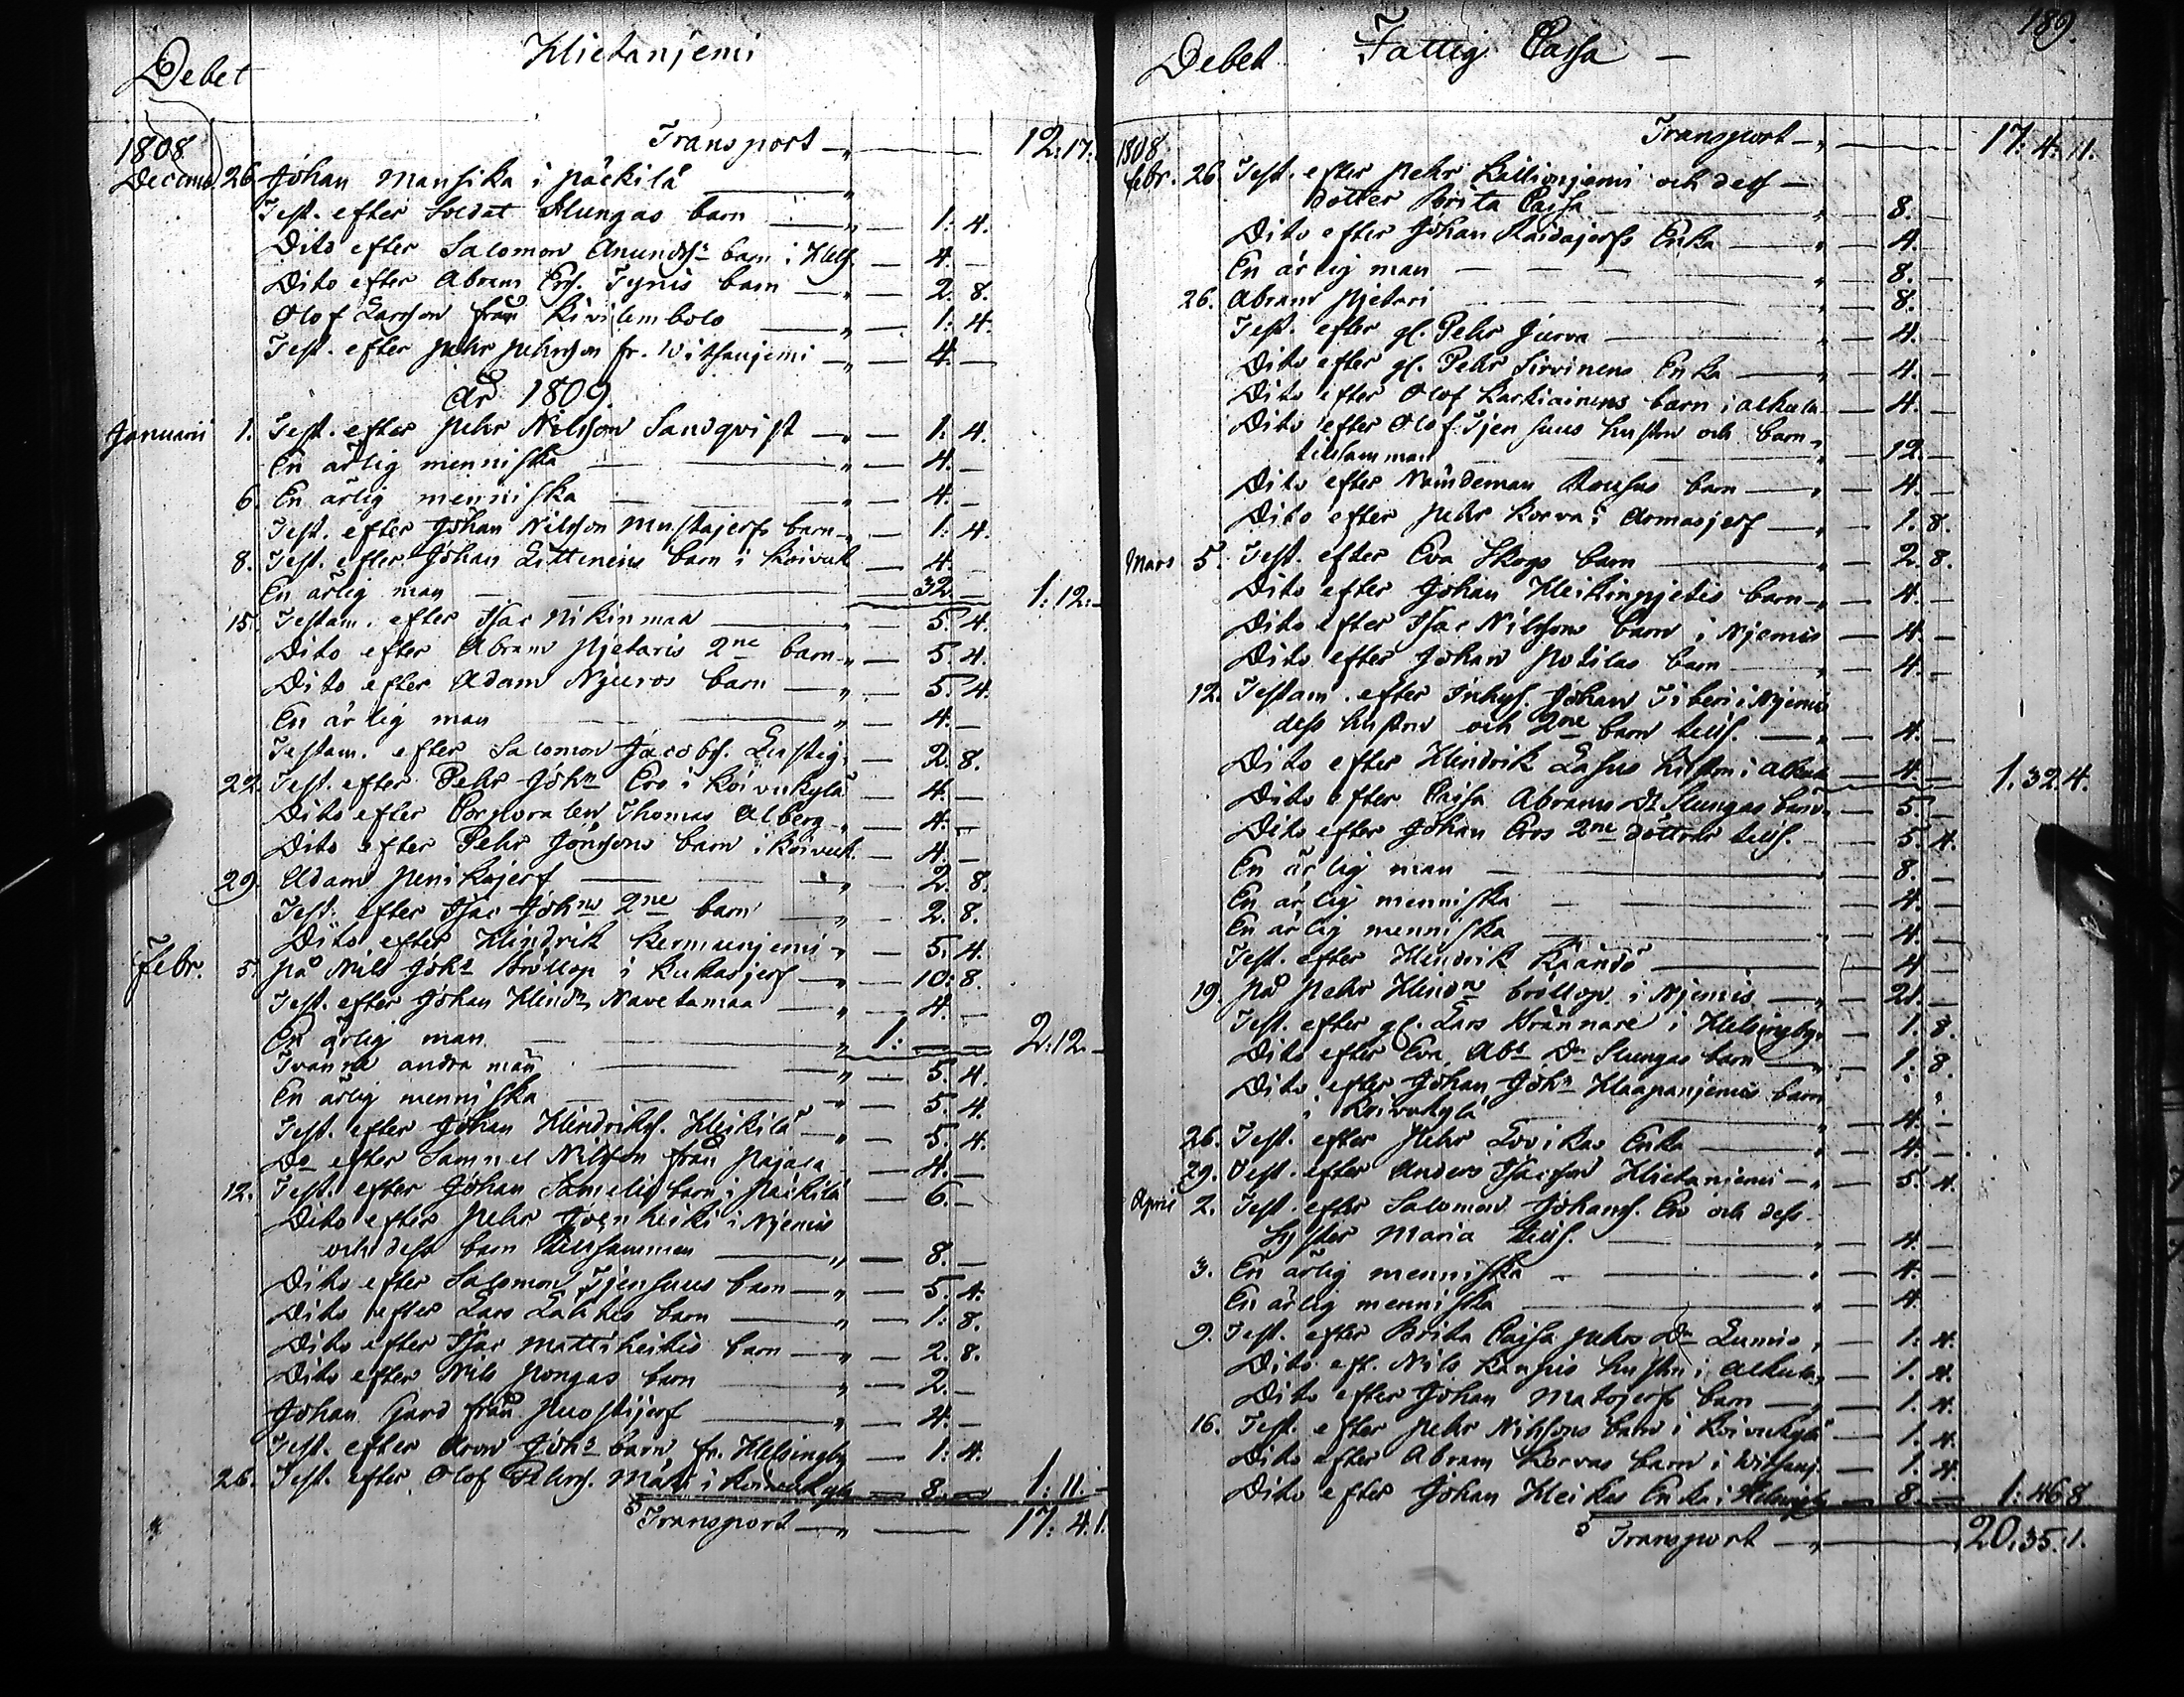 Debet Hietanjemi
1808 Transport — 12:17:
Decemb. 26 Johan Mansika i Päckilä
Test. efter Soldat Slungas barn — 1: 4.
Dito efter Salomon Anundss. barn i Hels. — 4. —
Dito efter Abram Ers. Tynis barn — 2. 8.
Olof Larsson från Kivilombolo — 1: 4.
Test. efter Pehr Pehrsson fr. Witsanjemi — 4. —
År 1809.
Januarii 1. Test. efter Pehr Nilsson Sandqvist — 1: 4.
En ärlig menniska — 4. —
6. En ärlig menniska — 4. —
Test. efter Johan Nilsson Mustajerfs barn — 1: 4.
8. Test. efter Johan Littenens barn i Koivuk — 4. —
En ärlig man — 32 — 1: 12: —
15. Testam. efter Isac Nikinmaa — 5. 4.
Dito efter Abram Pjetaris 2ne barn — 5. 4.
Dito efter Adam Njuros barn — 5. 4.
En ärlig man — 4. —
Testam. efter Salomon Jacobs. Lustig — 2. 8.
22. Test. efter Pehr John Ero i Koivukylä — 4. —
Dito efter Corporalen Thomas Alberg — 4. —
Dito efter Pehr Jönssons barn i Koivuk. — 4. —
29. Adam Penikajerf — 2. 8.
Test. efter Isac Johns 2ne barn — 2. 8.
Dito efter Hindrik Kermunjemi — 5. 4.
Febr. 5. På Nils Johs Bröllop i Kukasjerf — 10: 8.
Test. efter Johan Hindrs Navetamaa — 4. —
En ärlig man — 1: — — 2: 12. —
Tvänne andra män — 5. 4.
En ärlig menniska — 5. 4.
Test. efter Johan Hindrikss. Heikilä — 5. 4.
Do efter Samuel Nilsson från Pajala — 4. —
12. Test. efter Johan Samelis barn i Päckilä — 6. —
Dito efter Pehr Joenheiki i Njemis
och dess barn tillsamman — 8. —
Dito efter Salomon Tjenhuus barn — 5. 4.
Dito efter Lars Lahtis barn — 1: 8.
Dito efter Isac Mattiheikis barn — 2. 8.
Dito efter Nils Pongas barn — 2. —
Johan Gard från Puostijerf — 4. —
Test. efter Aron Johs barn fr. Helsingby — 1: 4.
26. Test. efter Olof Pehrs. Mäki i Koivukylä — 8. — 1: 11: —
Transport — 17: 4. 1.
189.
Debet Fattig Cassa —
1808 Transport — 17: 4. 11.
febr. 26. Test. efter Pehr Kallionjemi och dess —
dotter Brita Caisa — 8. —
Dito efter Johan Raidajerfs Enka — 4. —
En ärlig man — 8. —
26. Abram Pjetari — 8. —
Test. efter gl. Pehr Jurva — 4. —
Dito efter gl. Pehr Sirvinens Enka — 4. —
Dito efter Olof Karkiainens barn i alkula — 4. —
Dito efter Olof Tjenhuus hustru och barn
tillsamman — 12. —
Dito efter Nämdeman Rouhus barn — 4. —
Dito efter Pehr Korva i Armasjerf — 1. 8.
Mars 5. Test. efter Eva Skogs barn — 2. 8.
Dito efter Johan Heikinpjetis barn — 4. —
Dito efter Isac Nilssons barn i Njemis — 4. —
Dito efter Johan Potilas barn — 4. —
12. Testam. efter Inhys. Johan Tiberi i Njemis
dess hustru och 2ne barn tills. — 4. —
Dito efter Hindrik Lassus hustru i Alkula — 4. — 1. 32. 4.
Dito efter Caisa Abrams Dr Slungas barn — 5. —
Dito efter Johan Eros 2ne döttrar tills. — 5. 4.
En ärlig man — 8. —
En ärlig menniska — 4. —
En ärlig menniska — 4. —
Test. efter Hindrik Käändö — 4 —
19. På Pehr Hindrs bröllop i Njemis — 21. —
Test. efter gl. Lars Brännare i Helsingby — 1. 8.
Dito efter Eva Abs Dr Slungas barn — 1: 8.
Dito efter Johan Johs Haapanjemis barn
i Koivukylä — 4. —
26. Test. efter Pehr Lovikas Enka — 4. —
29. Test. efter Anders Isacsson Hietanjemi — 5. 4.
April 2. Test. efter Salomon Johanss. Ero och dess
Syster Maria tills. — 4. —
3. En ärlig menniska — 4. —
En ärlig menniska — 4.
9. Test. efter Brita Caisa Pehrs Dr Lumio — 1: 4.
Dito eft. Nils Kangis hustru i Alkula — 1. 4.
Dito efter Johan Matojerfs barn — 1. 4.
16. Test. efter Pehr Nilssons barn i Koivukylä — 1. 4.
Dito efter Abram Korvas barn i Witsanj. — 1. 4.
Dito efter Johan Heikas Enka i Helsingby — 8. — 1: 46 8
Transport — 20: 35. 1.